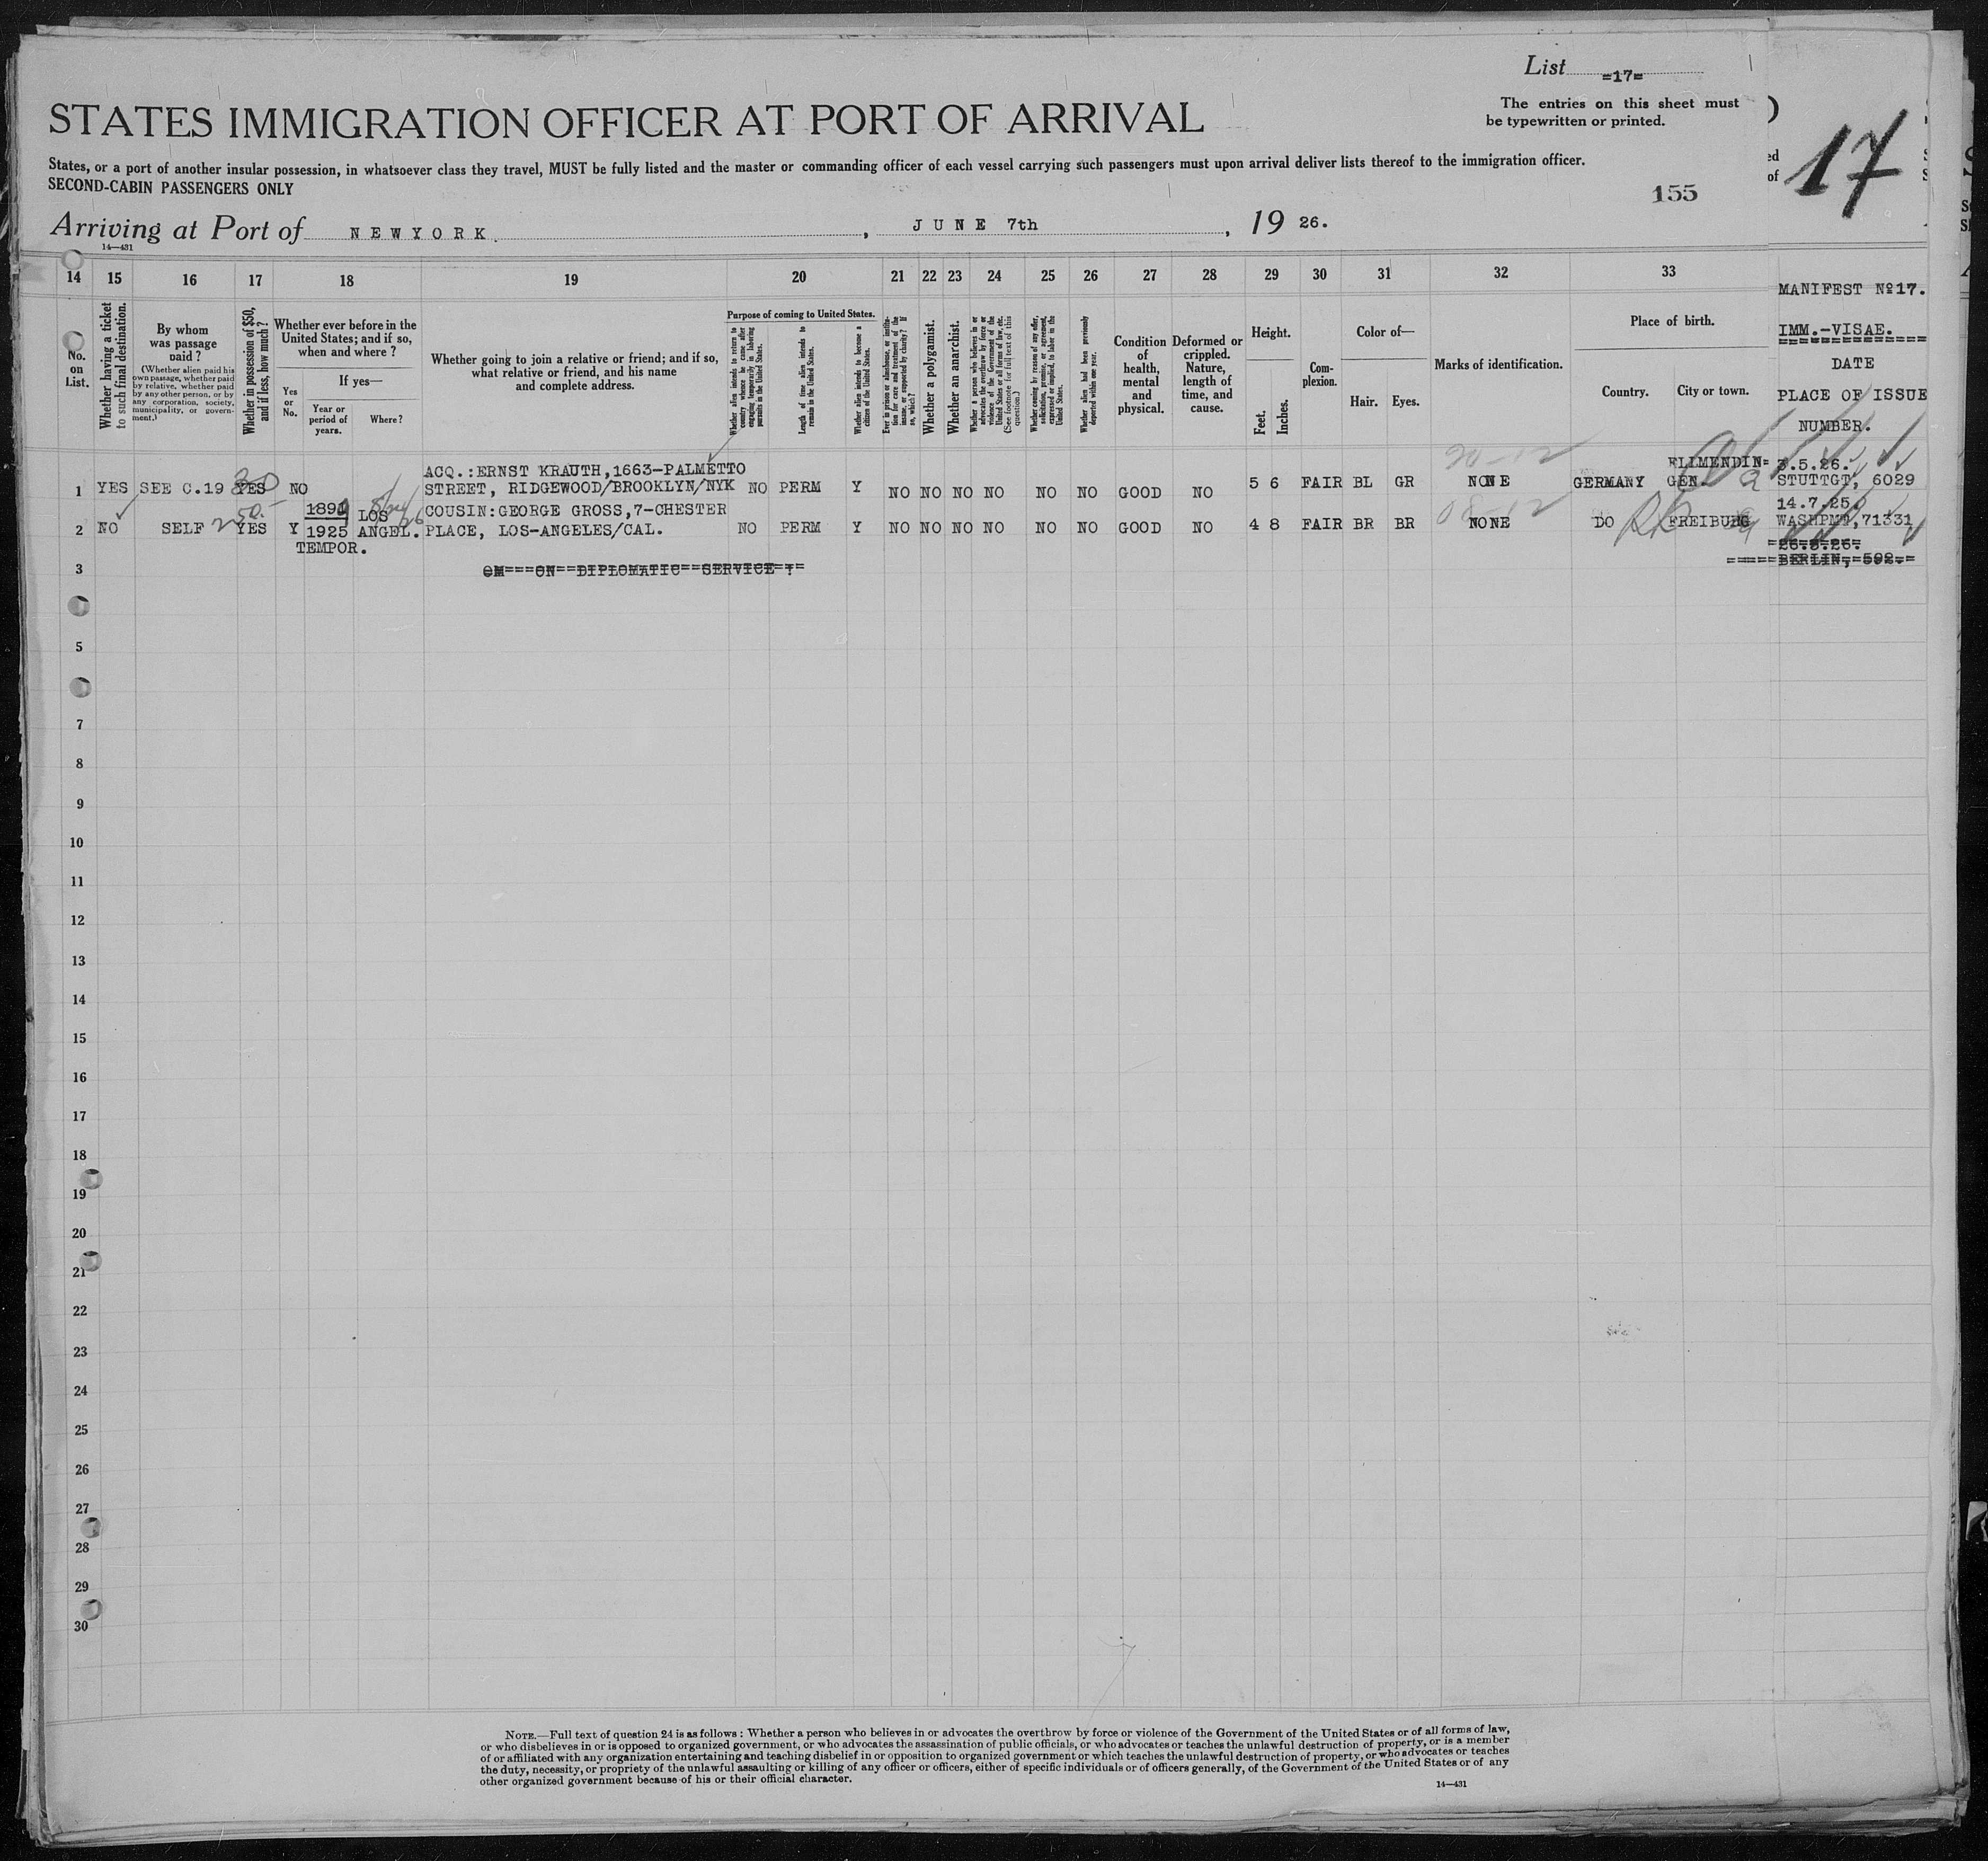 List =17=
The entries on this sheet must
be typewritten or printed.
STATES IMMIGRATION OFFICER AT PORT OF ARRIVAL
17
States, or a port of another insular possession, in whatsoever class they travel, MUST be fully listed and the master or commanding officer of each vessel carrying such passengers must upon arrival deliver lists thereof to the immigration officer.
SECOND-CABIN PASSENGERS ONLY
155
Arriving at Port of NEWYORK. , JUNE 7th , 19 26.
14—431
14 15 16 17 18 19 20 21 22 23 24 25 26 27 28 29 30 31 32 33
No. on List.
Whether having a ticket to such final destination.
By whom was passage paid?
(Whether alien paid his own passage, whether paid by relative, whether paid by any other person, or by any corporation, society, municipality, or government.)
Whether in possession of $50, and if less, how much?
Whether ever before in the United States; and if so, when and where?
Yes or No.
If yes—
Year or period of years.
Where?
Whether going to join a relative or friend; and if so, what relative or friend, and his name and complete address.
Purpose of coming to United States.
Whether alien intends to return to country whence he came after engaging temporarily in laboring pursuits in the United States.
Length of time alien intends to remain in the United States.
Whether alien intends to become a citizen of the United States.
Ever in prison or almshouse, or institution for care and treatment of the insane, or supported by charity? If so, which?
Whether a polygamist.
Whether an anarchist.
Whether a person who believes in or advocates the overthrow by force or violence of the Government of the United States or all forms of law, etc. (See footnote for full text of this question.)
Whether coming by reason of any offer, solicitation, promise, or agreement, expressed or implied, to labor in the United States.
Whether alien had been previously deported within one year.
Condition of health, mental and physical.
Deformed or crippled. Nature, length of time, and cause.
Height.
Feet. Inches.
Complexion.
Color of—
Hair. Eyes.
Marks of identification.
Place of birth.
Country. City or town.
MANIFEST Nº17.
IMM.-VISAE.
DATE
PLACE OF ISSUE
NUMBER.
ACQ.:ERNST KRAUTH,1663-PALMETTO ELLMENDIN= 3.5.26.
1 YES SEE C.19 YES NO STREET, RIDGEWOOD/BROOKLYN/NYK NO PERM Y NO NO NO NO NO NO GOOD NO 5 6 FAIR BL GR NONE GERMANY GEN. STUTTGT, 6029
1894 LOS COUSIN:GEORGE GROSS,7-CHESTER 14.7.25.
2 NO SELF YES Y 1925 ANGEL. PLACE, LOS-ANGELES/CAL. NO PERM Y NO NO NO NO NO NO GOOD NO 4 8 FAIR BR BR NONE DO FREIBURG WASHPMT,71331
TEMPOR. 26.3.26.
3 ON DIPLOMATIC SERVICE ! BERLIN, 592.
5
7
8
9
10
11
12
13
14
15
16
17
18
19
20
21
22
23
24
25
26
27
28
29
30
NOTE.—Full text of question 24 is as follows: Whether a person who believes in or advocates the overthrow by force or violence of the Government of the United States or of all forms of law,
or who disbelieves in or is opposed to organized government, or who advocates the assassination of public officials, or who advocates or teaches the unlawful destruction of property, or is a member
of or affiliated with any organization entertaining and teaching disbelief in or opposition to organized government or which teaches the unlawful destruction of property, or who advocates or teaches
the duty, necessity, or propriety of the unlawful assaulting or killing of any officer or officers, either of specific individuals or of officers generally, of the Government of the United States or of any
other organized government because of his or their official character.
14—431